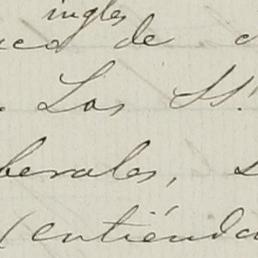 ingles
de
Los SS.
berales,
(entiénda